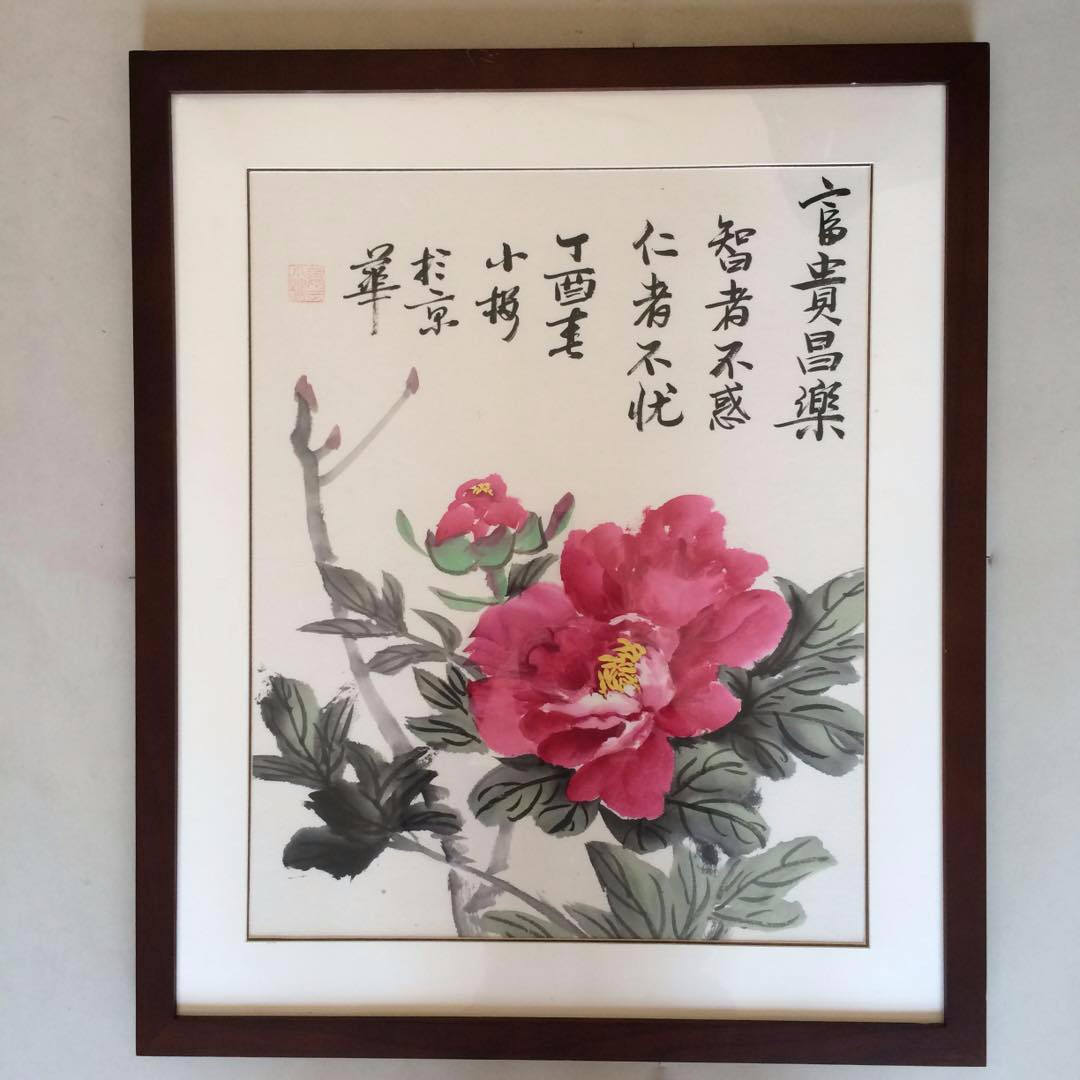 富貴昌樂
智者不惑
仁者不忧
丁酉春
小梅
於京
華